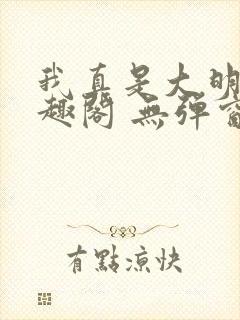 我真是大明
趣閣 無彈窗
有點涼快